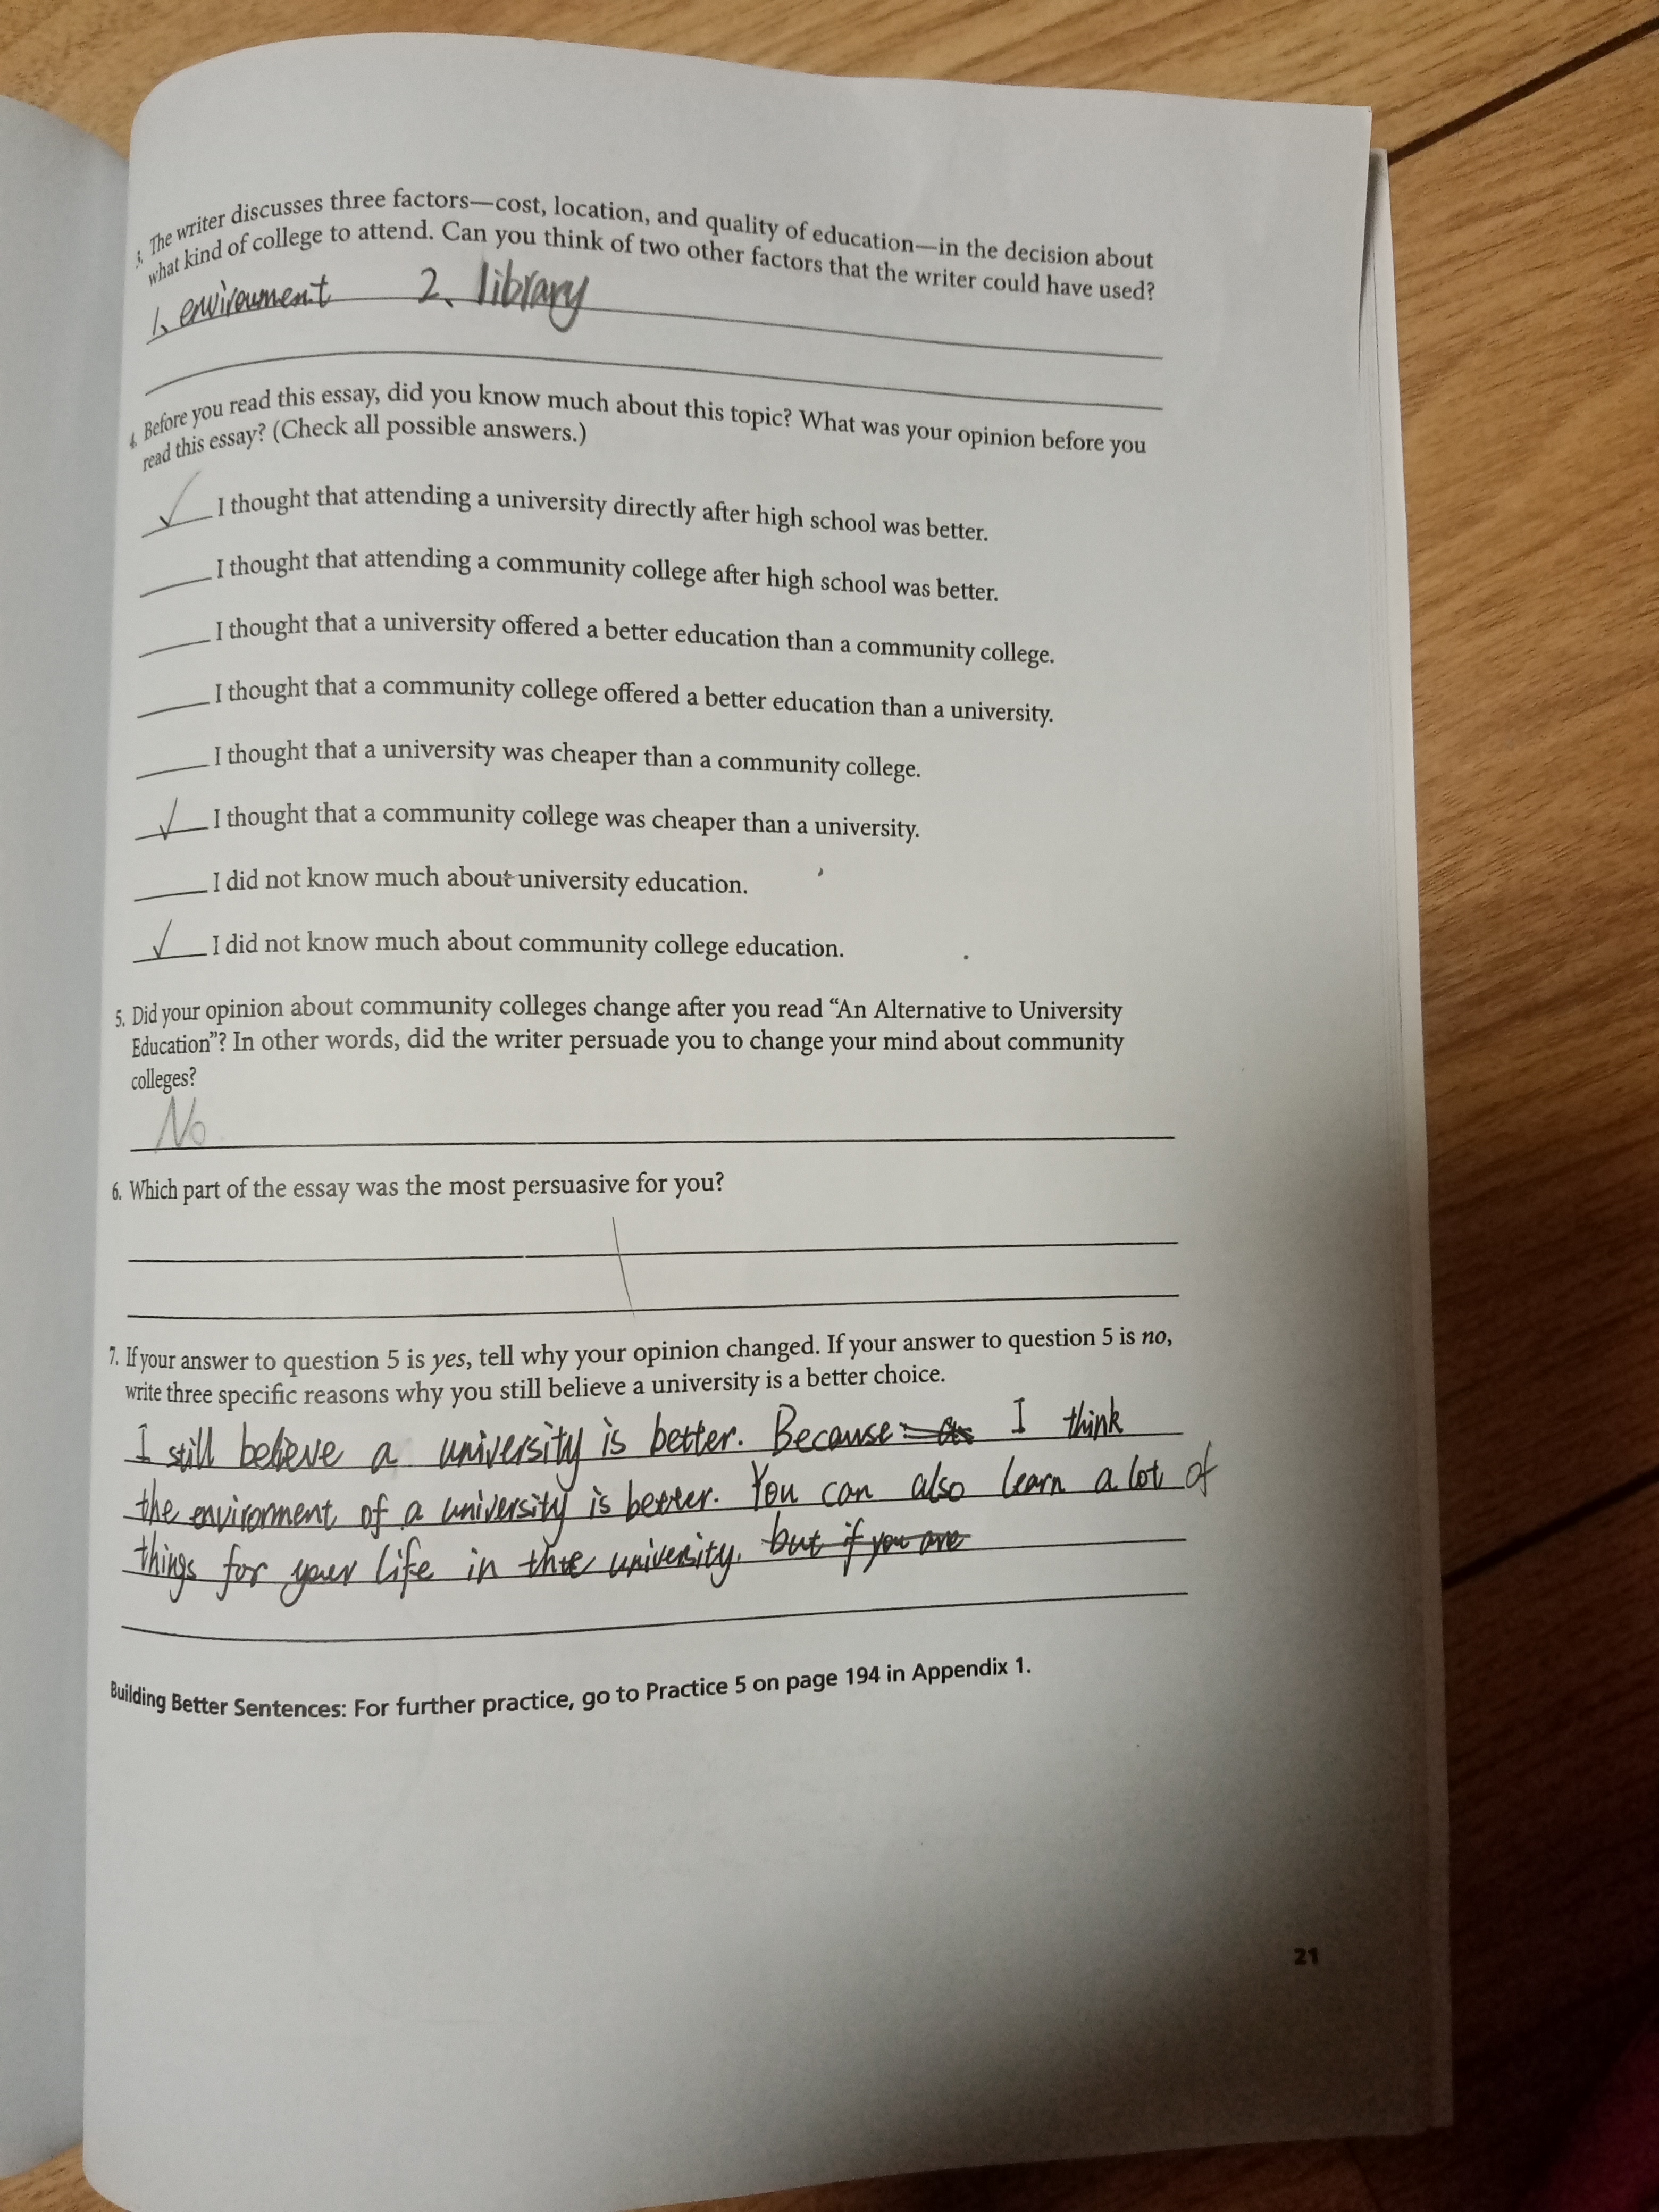 3. The writer discusses three factors—cost, location, and quality of education—in the decision about
what kind of college to attend. Can you think of two other factors that the writer could have used?
1、enviroument 2、library
4. Before you read this essay, did you know much about this topic? What was your opinion before you
read this essay? (Check all possible answers.)
✓ I thought that attending a university directly after high school was better.
____ I thought that attending a community college after high school was better.
____ I thought that a university offered a better education than a community college.
____ I thought that a community college offered a better education than a university.
____ I thought that a university was cheaper than a community college.
✓ I thought that a community college was cheaper than a university.
____ I did not know much about university education.
✓ I did not know much about community college education.
5. Did your opinion about community colleges change after you read “An Alternative to University
Education”? In other words, did the writer persuade you to change your mind about community
colleges?
No
6. Which part of the essay was the most persuasive for you?
7. If your answer to question 5 is yes, tell why your opinion changed. If your answer to question 5 is no,
write three specific reasons why you still believe a university is a better choice.
I still believe a university is better. Because I think
the environment of a university is better. You can also learn a lot of
things for your life in the university. but if you are
Building Better Sentences: For further practice, go to Practice 5 on page 194 in Appendix 1.
21